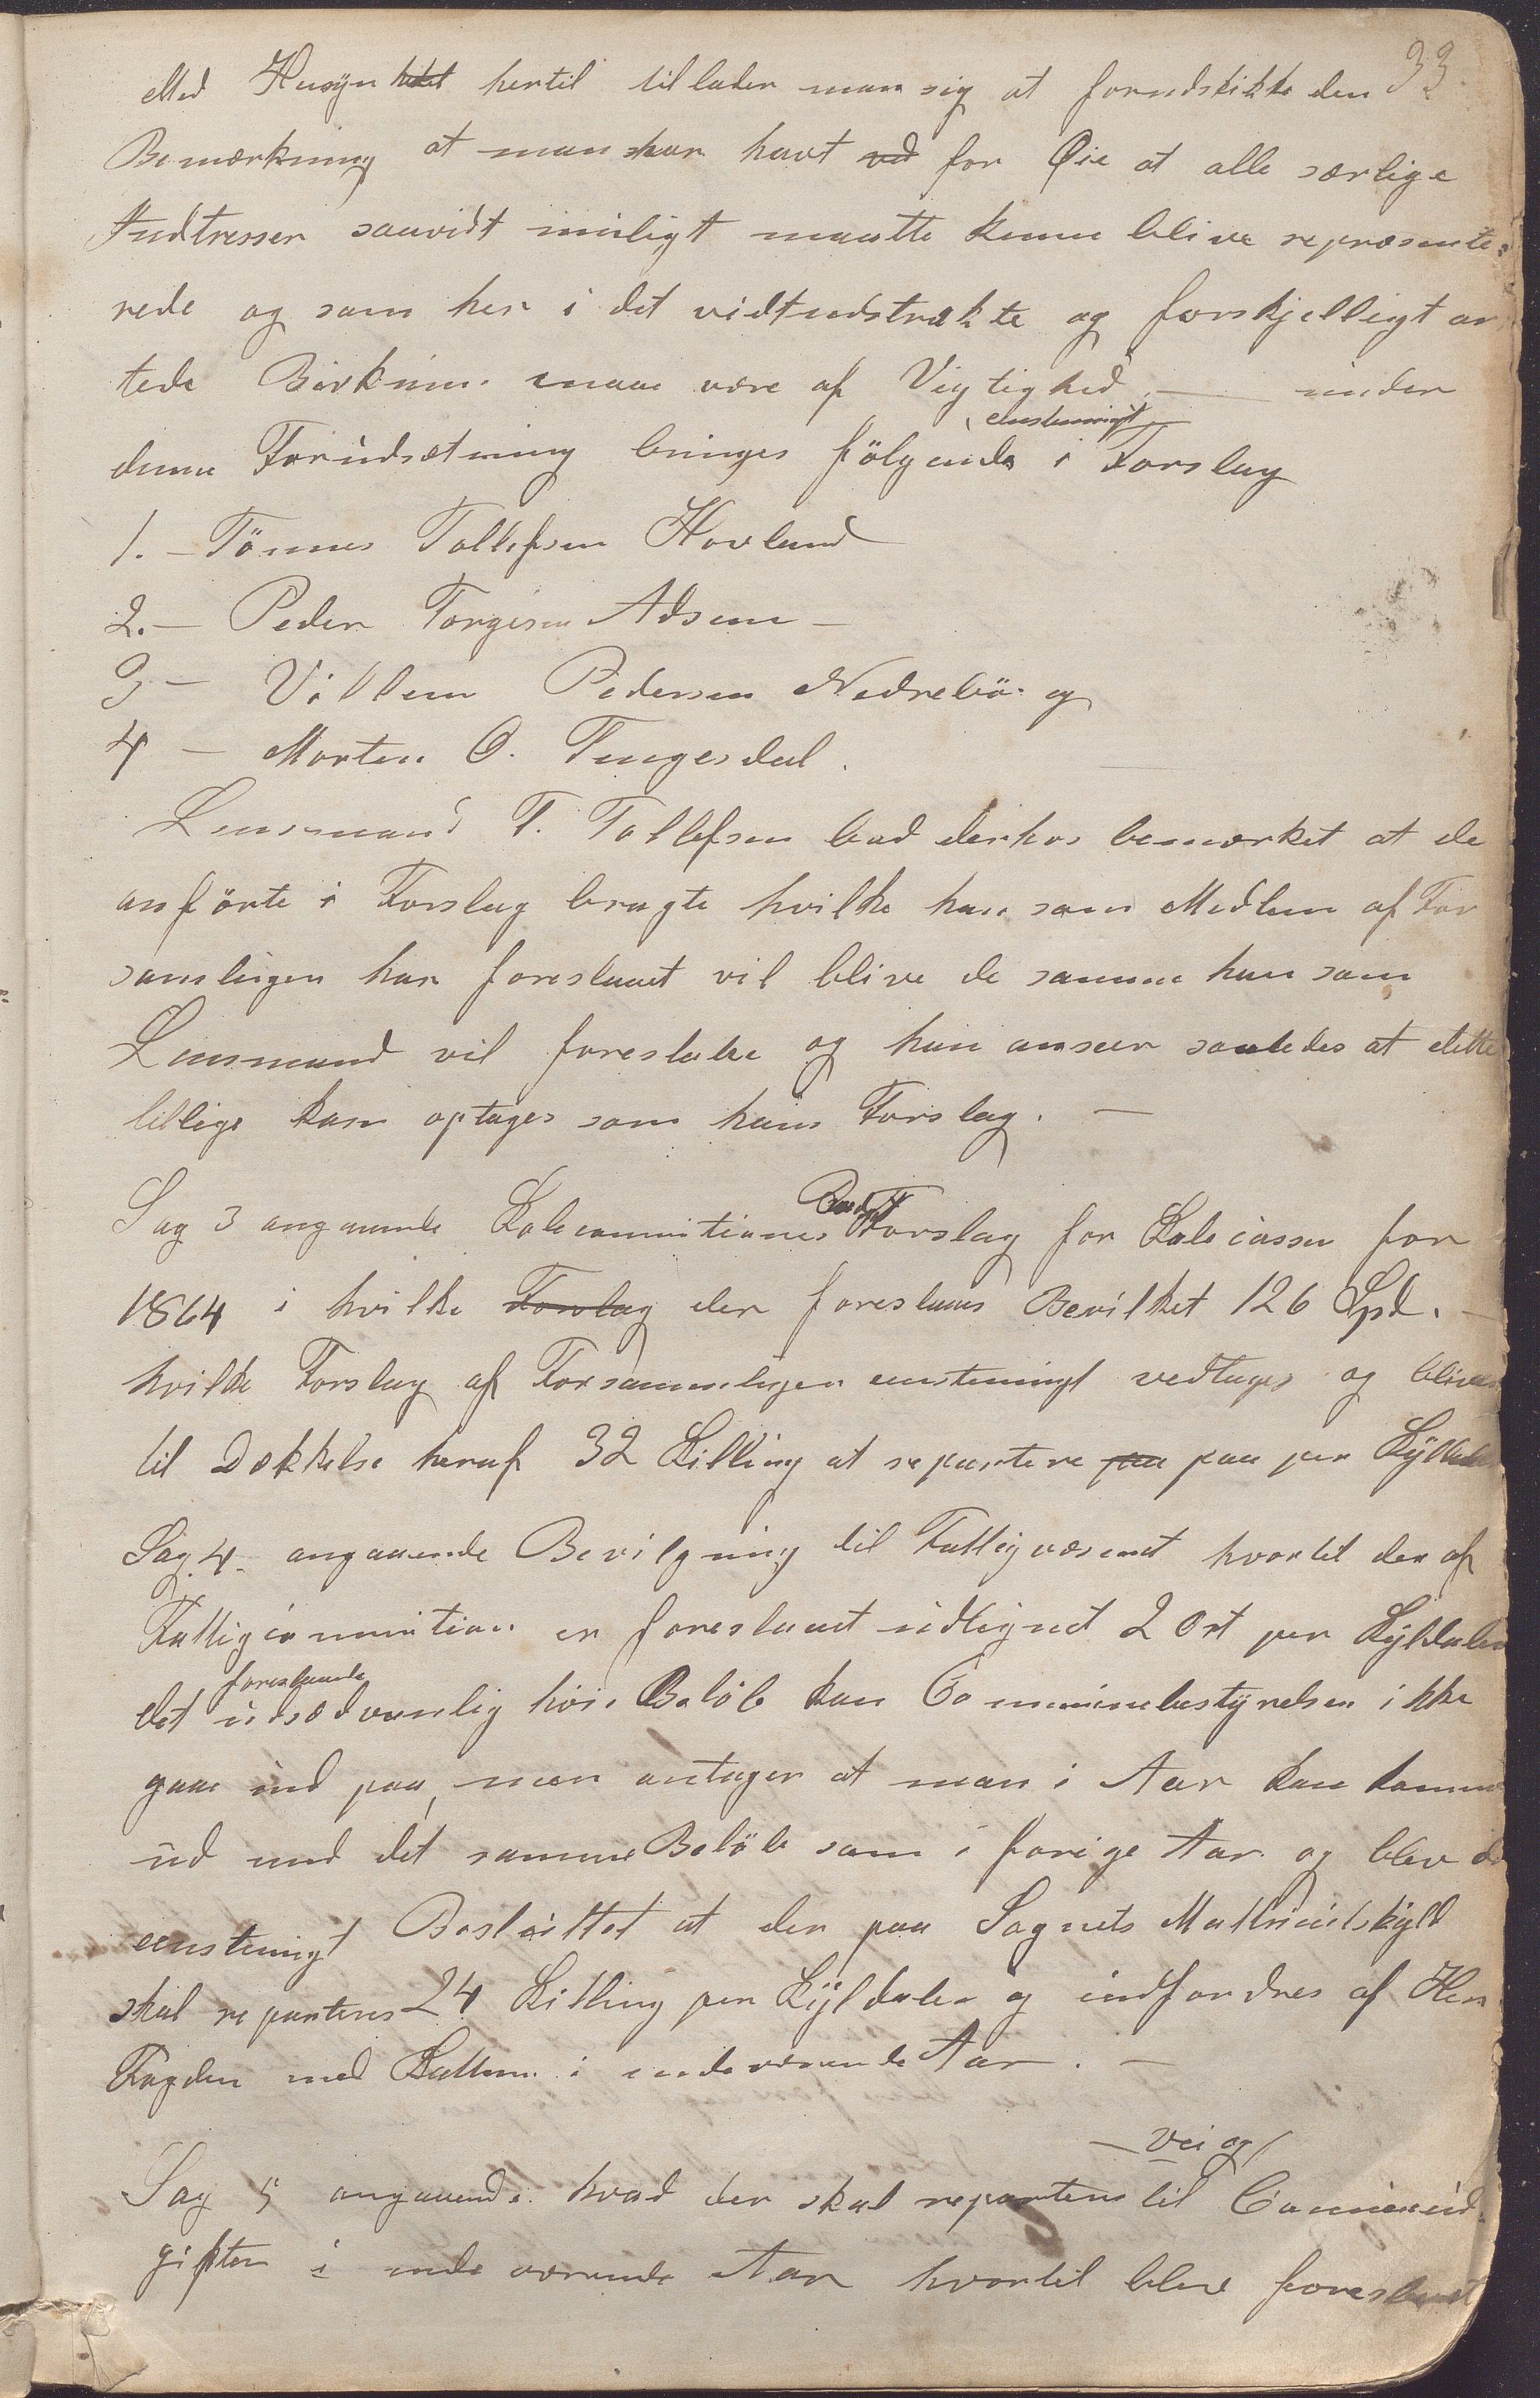 33
Med Hensyn hertil tillader man sig at forudskikke den
Bemærkning at man har havt for Øie at alle særlige
Indtresser saavidt muligt maatte kunne blive repræsente-
rede og som her i det vidtudstrakte og forskjelligt ar
tede maae være af Vigtighed. — under
eenstemigt
denne Forudsætning bringes fölgende i Forslag
1. – Tönnes Tollefsen Hovland
2. – Peder Torgersen Adsem –
3 – Villum Pedersen Nedrebö. og
4 – Morten O. Tengesdal.
Lensmand T. Tollefsen bad derhos bemærket at de
anförte i Forslag bragte hvilke han som Medlem af For
samlingen har foreslaaet vil blive de samme han som
Lensmand vil foreslaae og han anseer saaledes at dette
tillige kan optages som hans Forslag. —
Sag 3 angaaende Skolecommitionens Forslag for Skolecassen for
1864 i hvilke Forslag der foreslaaes Bevilket 126 Spd. –
hvilke Forslag af Forsammligen eenstemigt vedtages og bliver
til Dekkelse heraf 32 Skilling at repartere paa paa per Skylddaler
Sag 4. angaaende Bevilgning til Fattigvæsenet hvortil der af
Fattigcommitionen er foreslaaet udlignet 2 Ort per Skylddaler
foreslaaede
det udsædvanlig höie Belöb kan Communebestyrelsen ikke
gaae ind paa, men antager at man i Aar kan komme
ud med det samme Belöb som i forige Aar og blev de
eenstemigt Besluttet at der paa Sognets Matrikulskyld
skal reparteres 24 Skilling per Skyldaler og indfordres af Her
Fogden med Skatten i indeværende Aar. —
— Vei og
Sag 5 angaaende hvad der skal reparteres til Communeud-
gifter i indeværende Aar hvortil blev foreslaaet